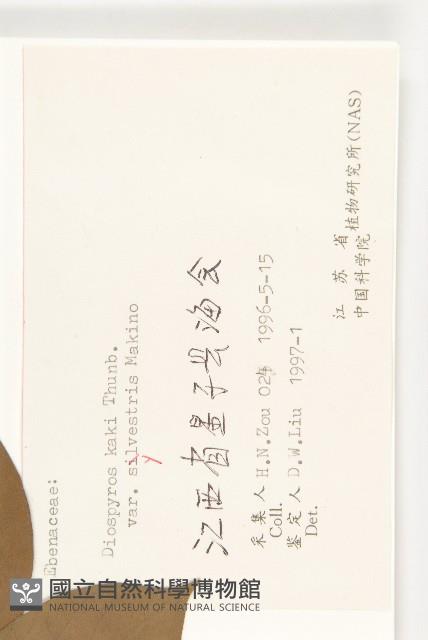 Ebenaceae:
Diospyros kaki Thunb.
var. silvestris Makino
y
江西省星子县海会
采集人 H.N.Zou 024 1996-5-15
Coll.
鉴定人 D.W.Liu 1997-1
Det.
江苏省
中国科学院植物研究所(NAS)
國立自然科學博物館
NATIONAL MUSEUM OF NATURAL SCIENCE